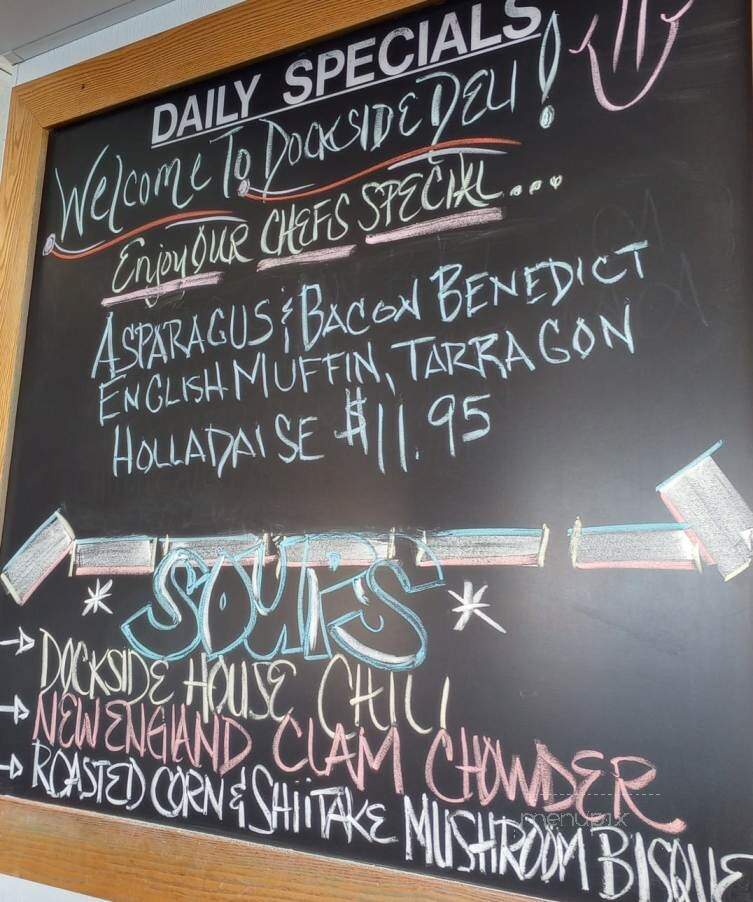 DAILY SPECIALS
Welcome To DOCKSIDE DELI!
Enjoy OUR CHEFS SPECIAL...
ASPARAGUS & BACON BENEDICT
ENGLISH MUFFIN, TARRAGON
HOLLADAISE $11.95
SOUPS
DOCKSIDE HOUSE CHILI
NEW ENGLAND CLAM CHOWDER
ROASTED CORN & SHIITAKE MUSHROOM BISQUE
menupix